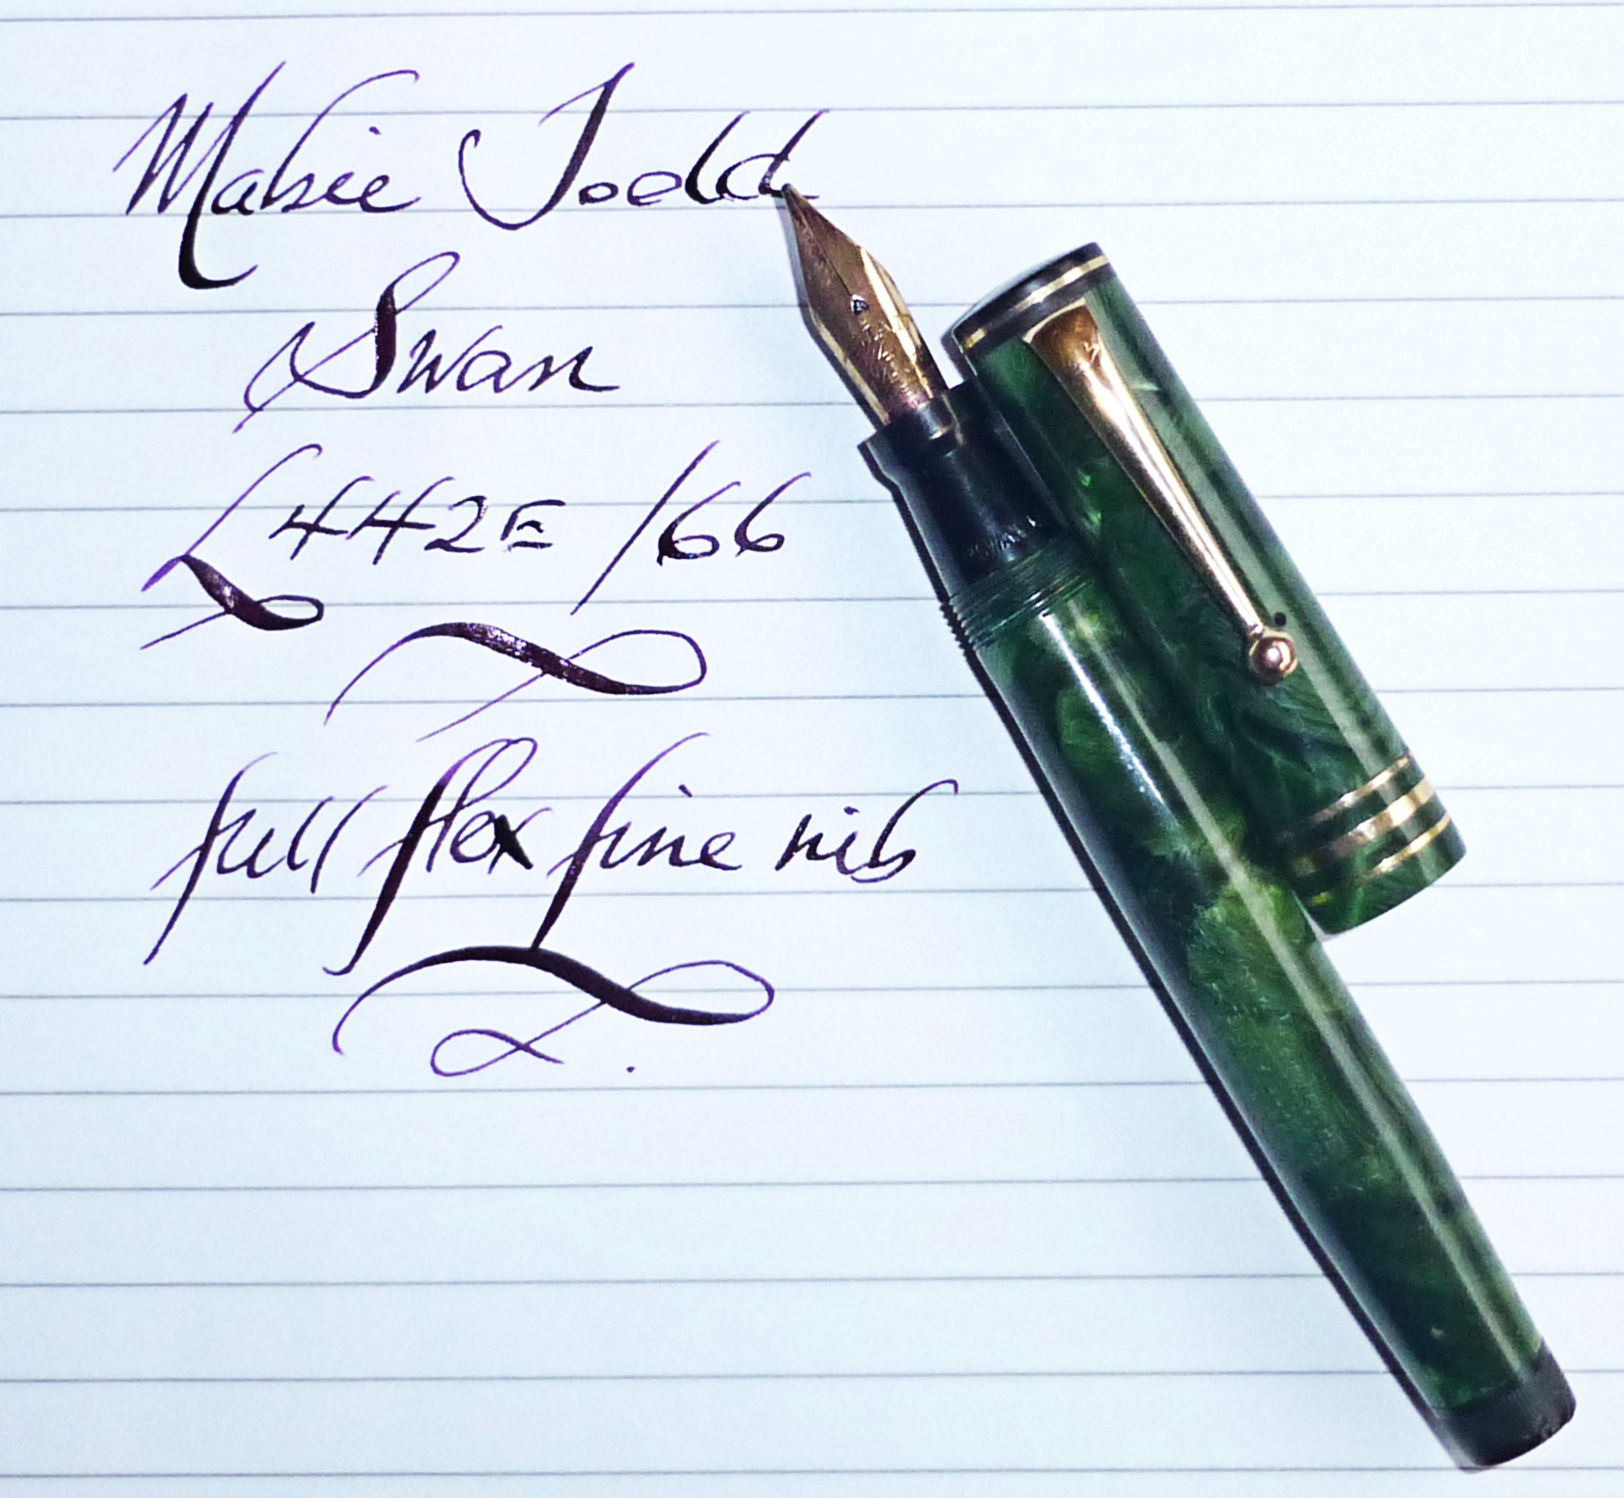 Mabie Todd
Swan
L442E/66
full flex fine nib